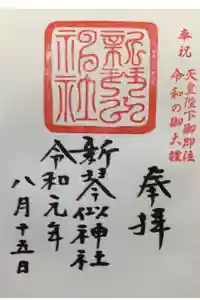 奉祝
天皇陛下御即位
令和の御大禮
奉拝
新琴似神社
新琴似神社
令和元年
八月十五日